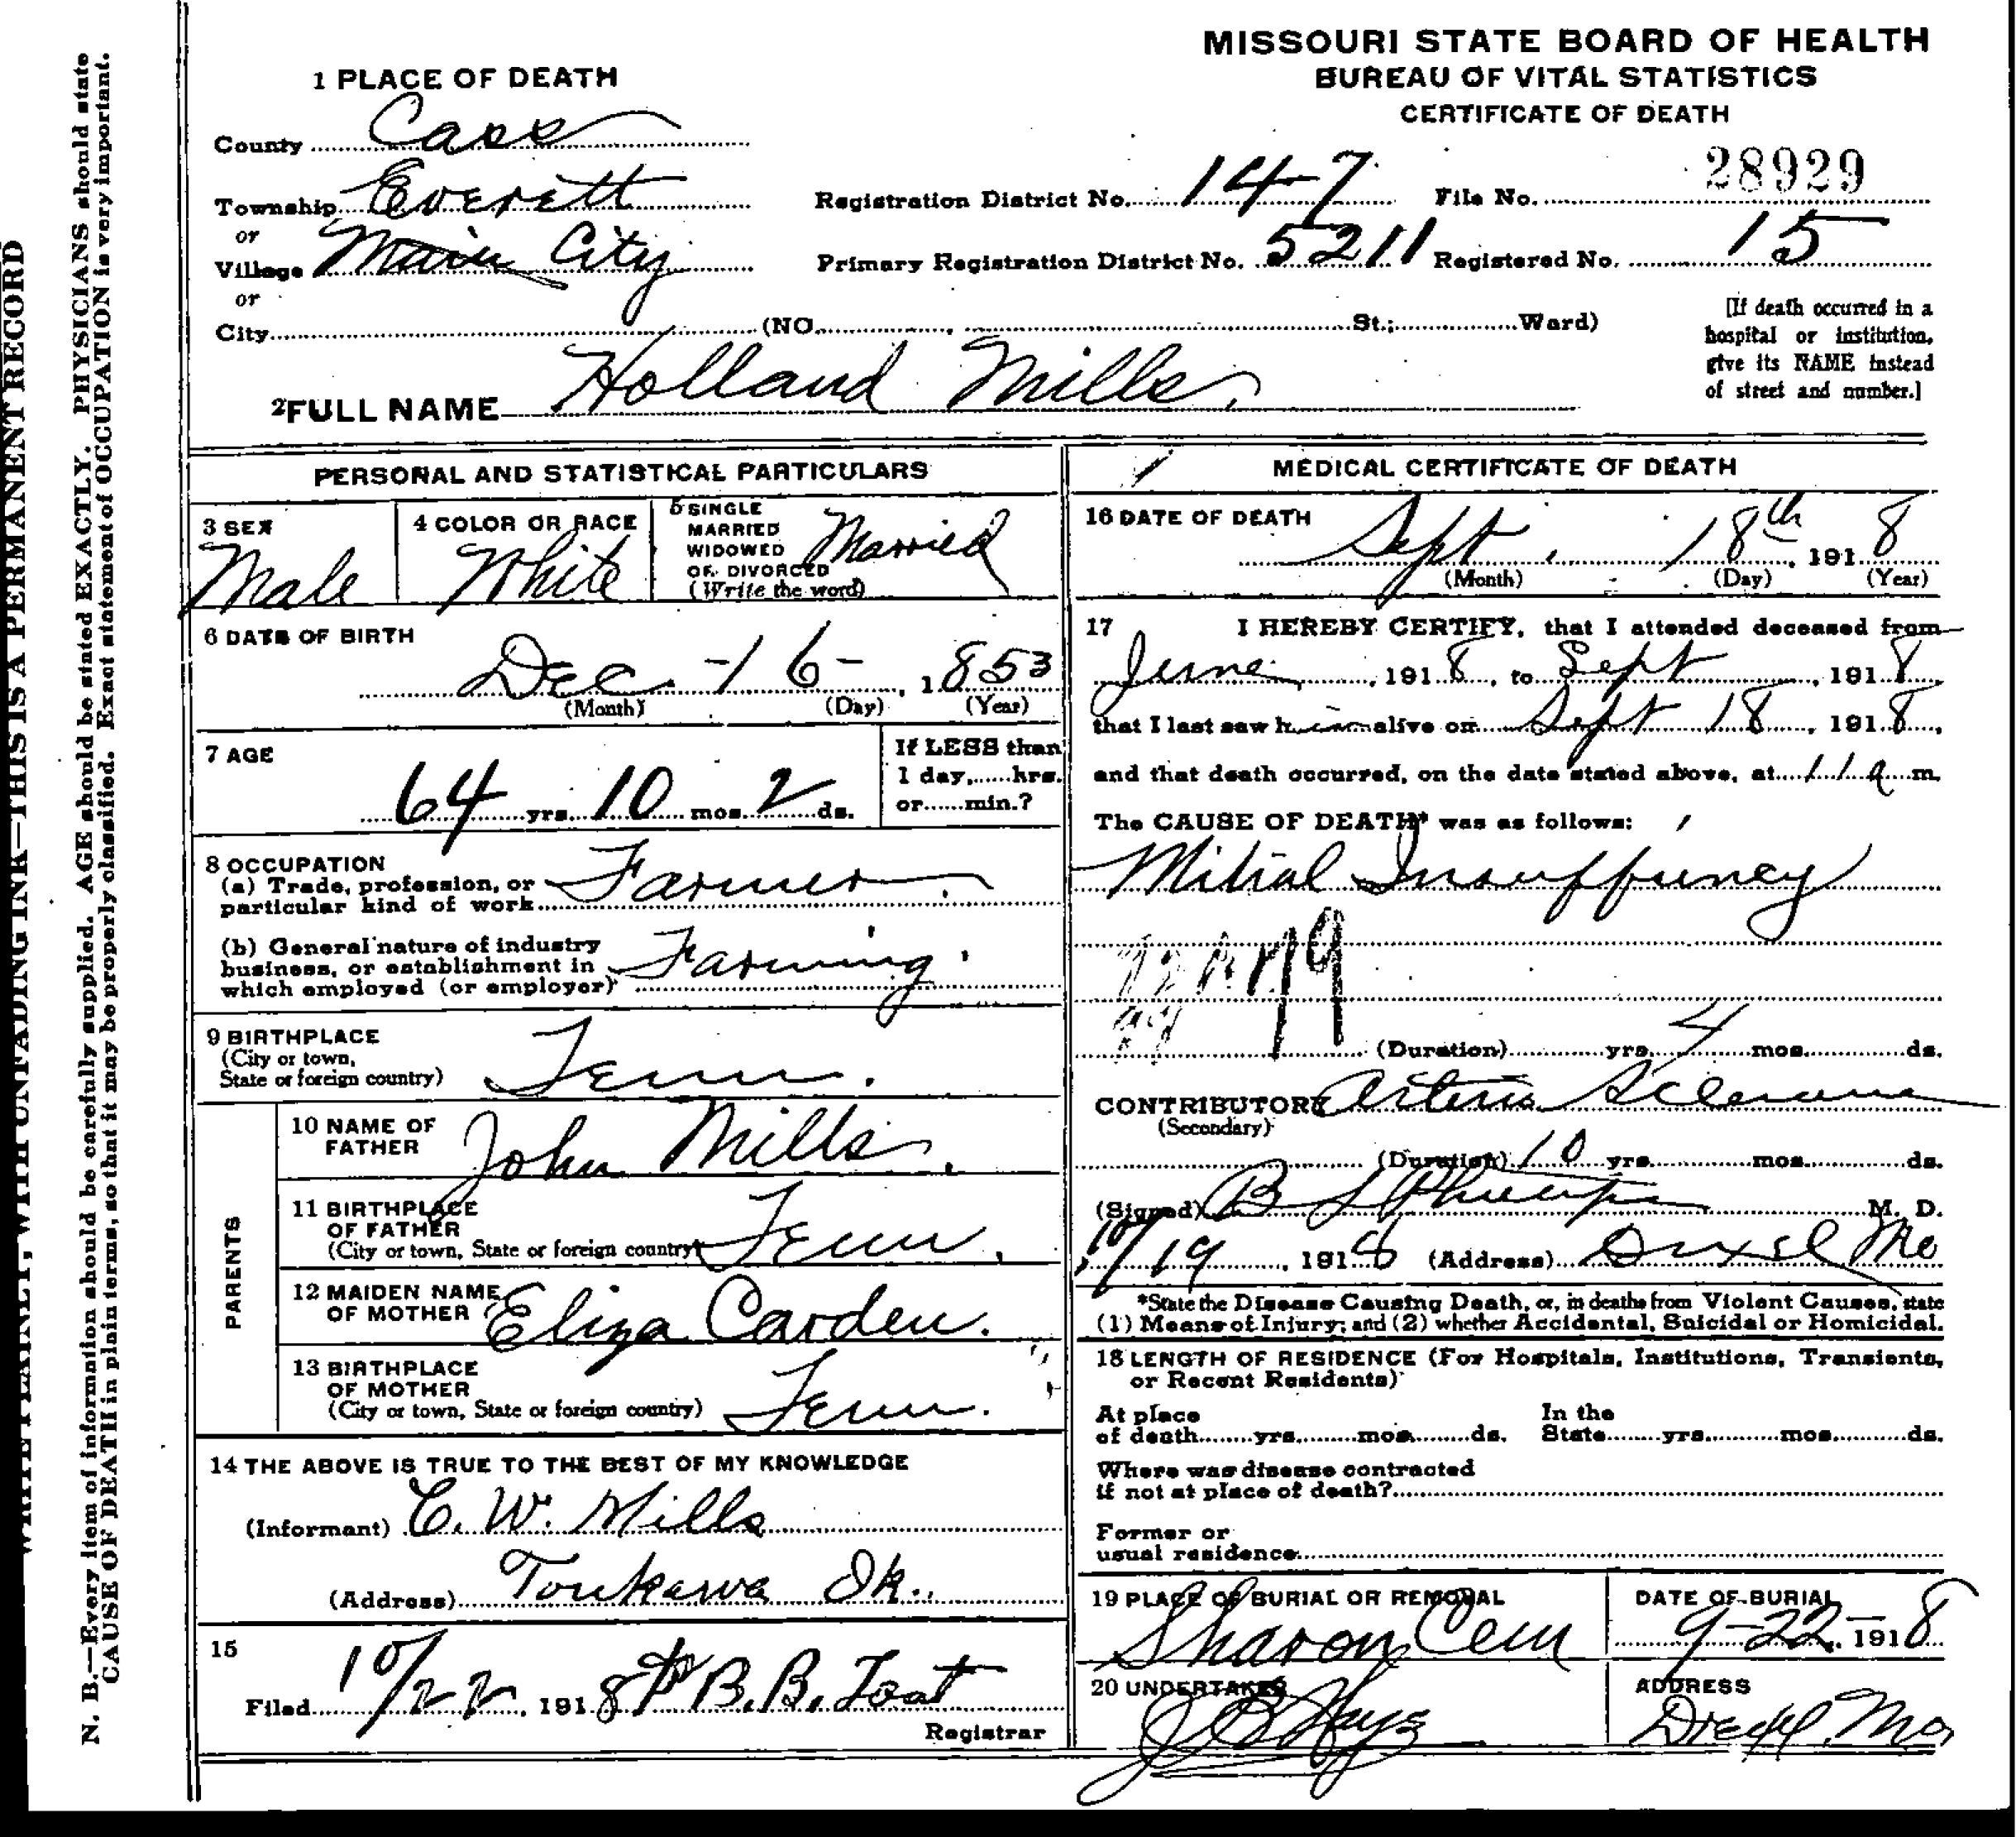 MISSOURI STATE BOARD OF HEALTH
BUREAU OF VITAL STATISTICS
CERTIFICATE OF DEATH
1 PLACE OF DEATH
County Cass
Township Everett
or
Village Main City
or
City (NO. , St.; Ward)
Registration District No. 147 File No. 28929
Primary Registration District No. 5211 Registered No. 15
[If death occurred in a
hospital or institution,
give its NAME instead
of street and number.]
2 FULL NAME Holland Mills.
PERSONAL AND STATISTICAL PARTICULARS
3 SEX
Male
4 COLOR OR RACE
White
5 SINGLE
MARRIED
WIDOWED
OR DIVORCED
(Write the word)
Married
6 DATE OF BIRTH
Dec - 16 - , 1853
(Month) (Day) (Year)
7 AGE
64 yrs. 10 mos. 2 ds.
If LESS than
1 day, hrs.
or min.?
8 OCCUPATION
(a) Trade, profession, or
particular kind of work Farmer.
(b) General nature of industry
business, or establishment in
which employed (or employer) Farming
9 BIRTHPLACE
(City or town,
State or foreign country) Tenn.
PARENTS
10 NAME OF
FATHER John Mills.
11 BIRTHPLACE
OF FATHER
(City or town, State or foreign country) Tenn.
12 MAIDEN NAME
OF MOTHER Eliza Carden.
13 BIRTHPLACE
OF MOTHER
(City or town, State or foreign country) Tenn.
14 THE ABOVE IS TRUE TO THE BEST OF MY KNOWLEDGE
(Informant) C. W. Mills
(Address) Tonkawa Ok.
15
Filed 10/22, 1918 B. B. Tout
Registrar
MEDICAL CERTIFICATE OF DEATH
16 DATE OF DEATH
Sept. 18th, 1918
(Month) (Day) (Year)
17 I HEREBY CERTIFY, that I attended deceased from
June, 1918, to Sept, 1918,
that I last saw him alive on Sept 18, 1918,
and that death occurred, on the date stated above, at 11 a m.
The CAUSE OF DEATH* was as follows:
Mitral Insuffiency
79
(Duration) yrs. 4 mos. ds.
CONTRIBUTORY Arterio Sclerosis
(Secondary)
(Duration) 10 yrs. mos. ds.
(Signed) B L M. D.
10/19, 1918 (Address) Drexel Mo
*State the Disease Causing Death, or, in deaths from Violent Causes, state
(1) Means of Injury; and (2) whether Accidental, Suicidal or Homicidal.
18 LENGTH OF RESIDENCE (For Hospitals, Institutions, Transients,
or Recent Residents)
At place
of death yrs. mos. ds.
In the
State yrs. mos. ds.
Where was disease contracted
if not at place of death?
Former or
usual residence
19 PLACE OF BURIAL OR REMOVAL
Sharon Cem
DATE OF BURIAL
9-22-1918
20 UNDERTAKER
J B Hays
ADDRESS
Drexel, Mo
N. B.—Every item of information should be carefully supplied. AGE should be stated EXACTLY. PHYSICIANS should state
CAUSE OF DEATH in plain terms, so that it may be properly classified. Exact statement of OCCUPATION is very important.
WRITE PLAINLY, WITH UNFADING INK—THIS IS A PERMANENT RECORD